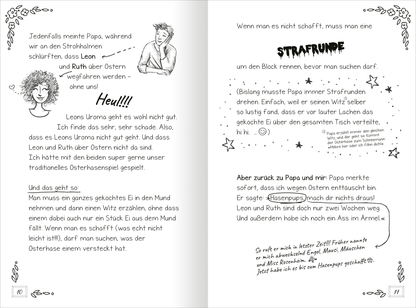 Jedenfalls meinte Papa, während
wir an den Strohhalmen
schlürften, dass Leon
und Ruth über Ostern
wegfahren werden -
ohne uns!
Heul!!!
Leons Uroma geht es wohl nicht gut.
Ich finde das sehr, sehr schade. Also,
dass es Leons Uroma nicht gut geht. Und dass
Leon und Ruth über Ostern nicht da sind.
Ich hätte mit den beiden super gerne unser
traditionelles Osterhasenspiel gespielt.
Und das geht so:
Man muss ein ganzes gekochtes Ei in den Mund
nehmen und dann einen Witz erzählen, ohne dass
einem dabei auch nur ein Stück Ei aus dem Mund
fällt. Wenn man es schafft (was echt nicht
leicht ist!!), darf man suchen, was der
Osterhase einem versteckt hat.
10
Wenn man es nicht schafft, muss man eine
STRAFRUNDE
um den Block rennen, bevor man suchen darf.
(Bislang musste Papa immer Strafrunden
drehen. Einfach, weil er seinen Witz selber
so lustig fand, dass er vor lauter Lachen das
gekochte Ei über den gesamten Tisch verteilte,
hi hi ...)
Aber zurück zu Papa und mir: Papa merkte
sofort, dass ich wegen Ostern enttäuscht bin.
Er sagte: »Hasenpups, mach dir nichts draus!
Leon und Ruth sind doch nur zwei Wochen weg.
Und außerdem habe ich noch ein Ass im Ärmel.«
So ruft er mich in letzter Zeit!!! Früher nannte
er mich abwechselnd Engel, Mausi, Mäuschen
und Miss Rosenheim.
Jetzt habe ich es bis zum Hasenpups geschafft
11